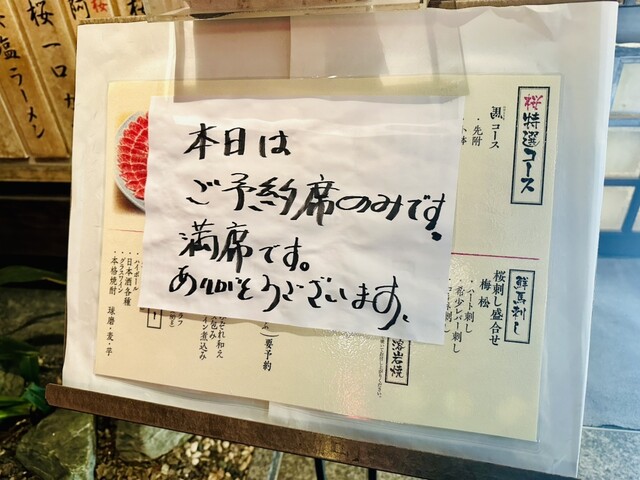 本日は
ご予約席のみです。
満席です。
ありがとうございます、
桜特選コース
コース
・先附
鮮馬刺し
桜刺し盛合せ
梅 松
・ハート刺し
・希少レバー刺し
溶岩焼
要予約
ぞれ和え
包み
イン煮込み
・ハイボール
・日本酒各種
・グラスワイン
・本格焼酎 球磨・麦・芋
桜一口
塩ラーメン